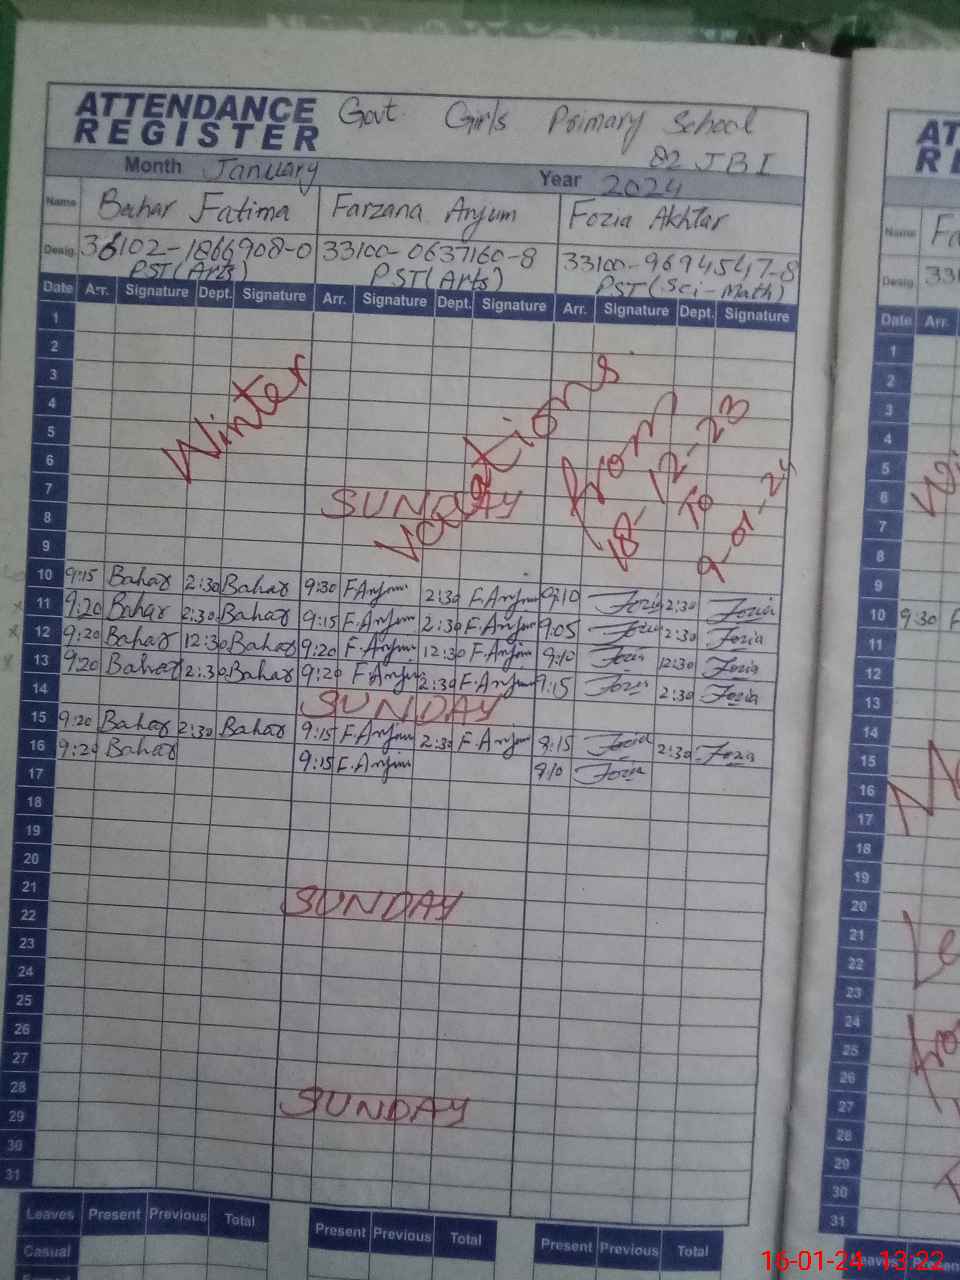 ATTENDANCE REGISTER Govt. Girls Primary School
82 JBI
Month January Year 2024
Name Bahar Fatima Farzana Anjum Fozia Akhtar
Desig. 36102-1866908-0 33100-0637160-8 33100-9694547-8
PST(Arts) PST(Arts) PST(Sci-Math)
Date Arr. Signature Dept. Signature Arr. Signature Dept. Signature Arr. Signature Dept. Signature
1
2
3
4
5
6
7 SUNDAY
8
9
Winter Vacations from 18-12-23 to 9-01-24
10 9:15 Bahar 2:30 Bahar 9:30 F.Anjum 2:30 F.Anjum 9:10 Fozia 2:30 Fozia
11 9:20 Bahar 2:30 Bahar 9:15 F.Anjum 2:30 F.Anjum 9:05 Fozia 2:30 Fozia
12 9:20 Bahar 12:30 Bahar 9:20 F.Anjum 12:30 F.Anjum 9:10 Fozia 12:30 Fozia
13 9:20 Bahar 2:30 Bahar 9:20 F.Anjum 2:30 F.Anjum 9:15 Fozia 2:30 Fozia
14 SUNDAY
15 9:20 Bahar 2:30 Bahar 9:15 F.Anjum 2:30 F.Anjum 8:15 Fozia 2:30 Fozia
16 9:20 Bahar 9:15 F.Anjum Fozia
17
18
19
20
21 SUNDAY
22
23
24
25
26
27
28 SUNDAY
29
30
31
Leaves Present Previous Total Present Previous Total Present Previous Total
Casual
Name
Desig. 331
Date Arr.
1
2
3
4
5
6
7
8
9
10 9:30 F
11
12
13
14
15
16
17
18
19
20
21
22
23
24
25
26
27
28
29
30
31
Leaves Present
16-01-24 13:22